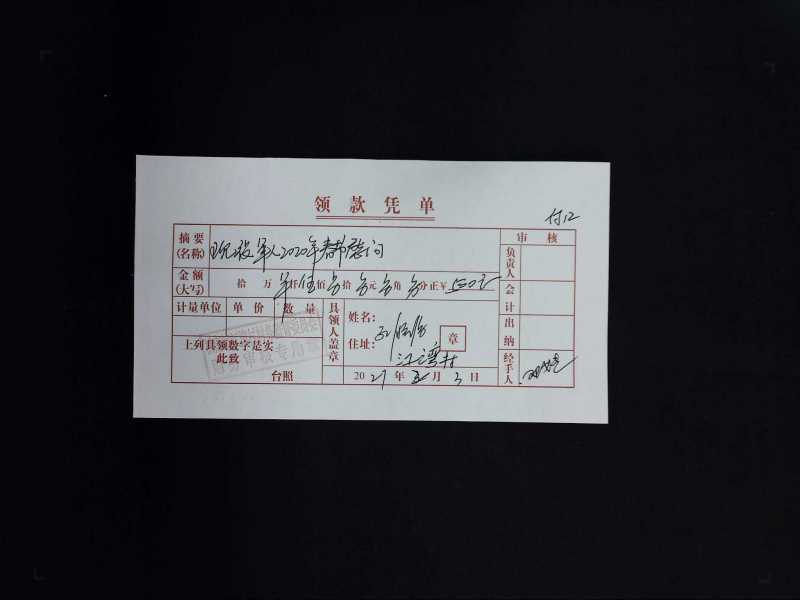 领款凭单
付12
摘要(名称) 现役军人2020年春节慰问
审核
负责人
金额(大写) 拾 万 仟伍佰 拾 元 角 分正¥
会计
计量单位 单价 数量
具领人盖章
姓名:
出纳
上列具领数字是实
此致
住址: 江湾村
章
财务审核专用章
经手人
台照
20 年 月 日